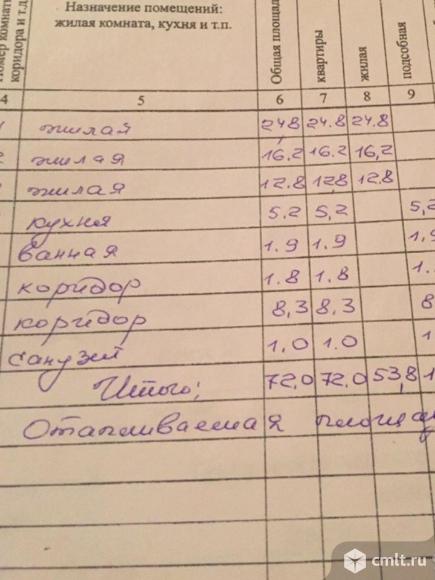 Номер комнаты, коридора и т.д.
Назначение помещений: жилая комната, кухня и т.п.
Общая площадь
квартиры
жилая
подсобная
4 5 6 7 8 9
жилай 24.8 24.8 24.8
2 жилая 16.2 16.2 16,2
жилая 12.8 12,8 12.8
кухня 5.2 5,2 5,2
ванная 1.9 1.9 1,9
коридор 1.8 1.8 1.
коридор 8,3 8,3 8
санузел 1,0 1.0 1
Итого: 72,0 72,0 53,8 1
Отапливаемая площад
cmlt.ru